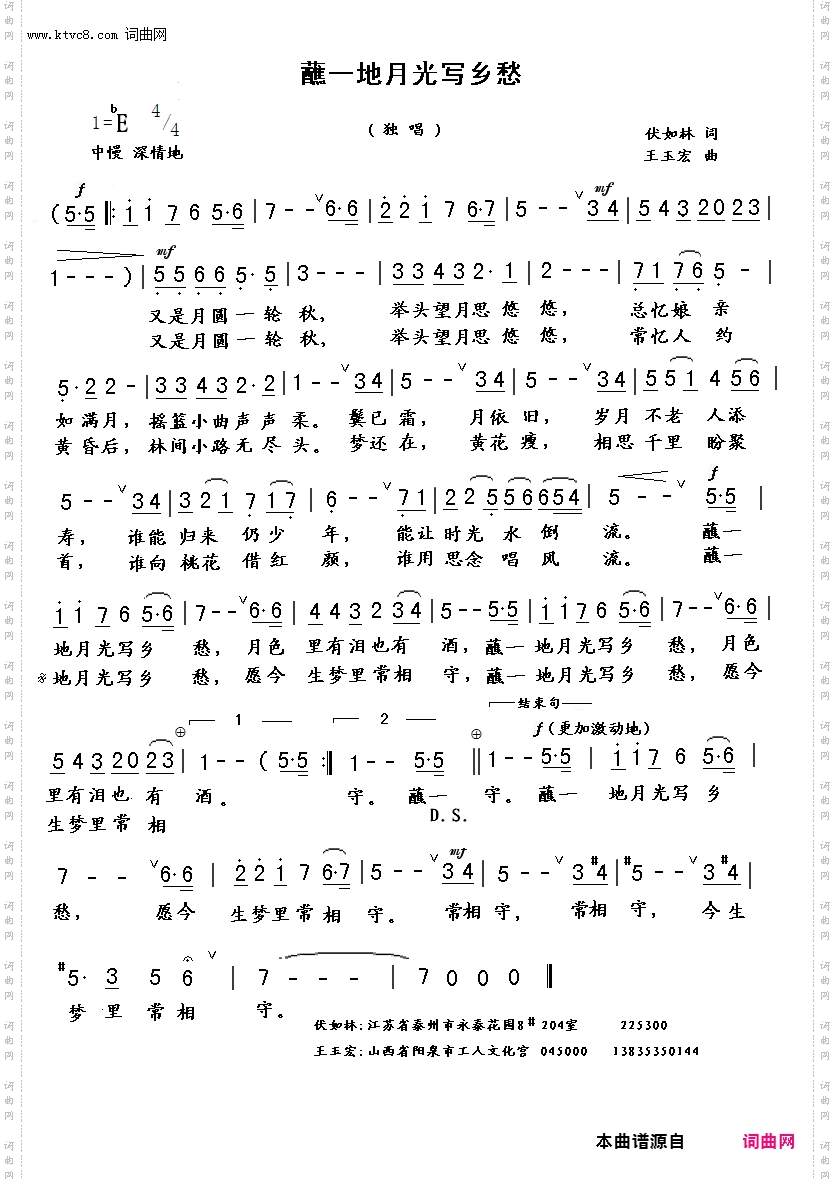 www.ktvc8.com 词曲网
蘸一地月光写乡愁
1=bE 4/4
(独唱)
伏如林 词
中慢 深情地
王玉宏 曲
f mf
(5·5 ‖: i i 7 6 5·6 | 7 - - ∨6·6 | 2 2 1 7 6·7 | 5 - - ∨3 4 | 5 4 3 2 0 2 3 |
mf
1 - - - ) | 5 5 6 6 5· 5 | 3 - - - | 3 3 4 3 2· 1 | 2 - - - | 7 1 7 6 5 - |
又是月圆一轮秋, 举头望月思悠悠, 总忆娘亲
又是月圆一轮秋, 举头望月思悠悠, 常忆人约
5· 2 2 - | 3 3 4 3 2· 2 | 1 - - ∨3 4 | 5 - - ∨3 4 | 5 - - ∨3 4 | 5 5 1 4 5 6 |
如满月, 摇篮小曲声声柔。鬓已霜, 月依旧, 岁月不老人添
黄昏后, 林间小路无尽头。梦还在, 黄花瘦, 相思千里盼聚
f
5 - - ∨3 4 | 3 2 1 7 1 7 | 6 - - ∨7 1 | 2 2 5 5 6 6 5 4 | 5 - - ∨ 5·5 |
寿, 谁能归来仍少年, 能让时光水倒流。蘸一
首, 谁向桃花借红颜, 谁用思念唱风流。蘸一
i i 7 6 5·6 | 7 - - ∨6·6 | 4 4 3 2 3 4 | 5 - - 5·5 | i i 7 6 5·6 | 7 - - ∨6·6 |
地月光写乡愁, 月色里有泪也有酒, 蘸一地月光写乡愁, 月色
※地月光写乡愁, 愿今生梦里常相守, 蘸一地月光写乡愁, 愿今
结束句
⊕ 1 2 ⊕ f(更加激动地)
5 4 3 2 0 2 3 | 1 - - ( 5·5 :‖ 1 - - 5·5 ‖ 1 - - 5·5 | i i 7 6 5·6 |
里有泪也有酒。 守。蘸一 守。蘸一 地月光写乡
生梦里常相
D.S.
mf
7 - - ∨6·6 | 2 2 1 7 6·7 | 5 - - ∨3 4 | 5 - - ∨3 #4 | #5 - - ∨3 #4 |
愁, 愿今生梦里常相守。 常相守, 常相守, 今生
#5· 3 5 6 ∨ | 7 - - - | 7 0 0 0 ‖
梦里常相守。
伏如林:江苏省泰州市永泰花园8# 204室 225300
王玉宏:山西省阳泉市工人文化宫 045000 13835350144
本曲谱源自 词曲网